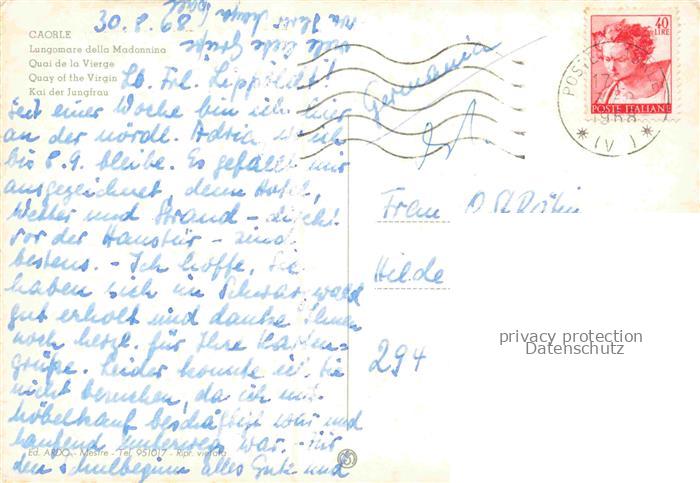 CAORLE
Lungomare della Madonnina
Quai de la Vierge
Quay of the Virgin
Kai der Jungfrau
30.8.68
Lb. Frl. Lippoldt!
Seit einer Woche bin ich hier
an der nördl. Adria, wo ich
bis 8.9. bleibe. Es gefällt mir
ausgezeichnet, denn Hotel,
Wetter und Strand - direkt
vor der Haustür - sind
bestens. - Ich hoffe, Sie
haben sich im Schwarzwald
gut erholt und danke Ihnen
noch herzl. für Ihre Karten=
grüße. Leider konnte ich Sie
nicht besuchen, da ich mit
Möbelkauf beschäftigt war und
laufend unterwegs war. - Für
den Schulbeginn alles Gute und
viele liebe Grüße
von Ihrer
Ed. ARDO - Mestre - Tel. 951017 - Ripr. vietata
Germania
40
LIRE
POSTE ITALIANE
1968
(V)
Frau OStRätin
Hilde
294
privacy protection
Datenschutz